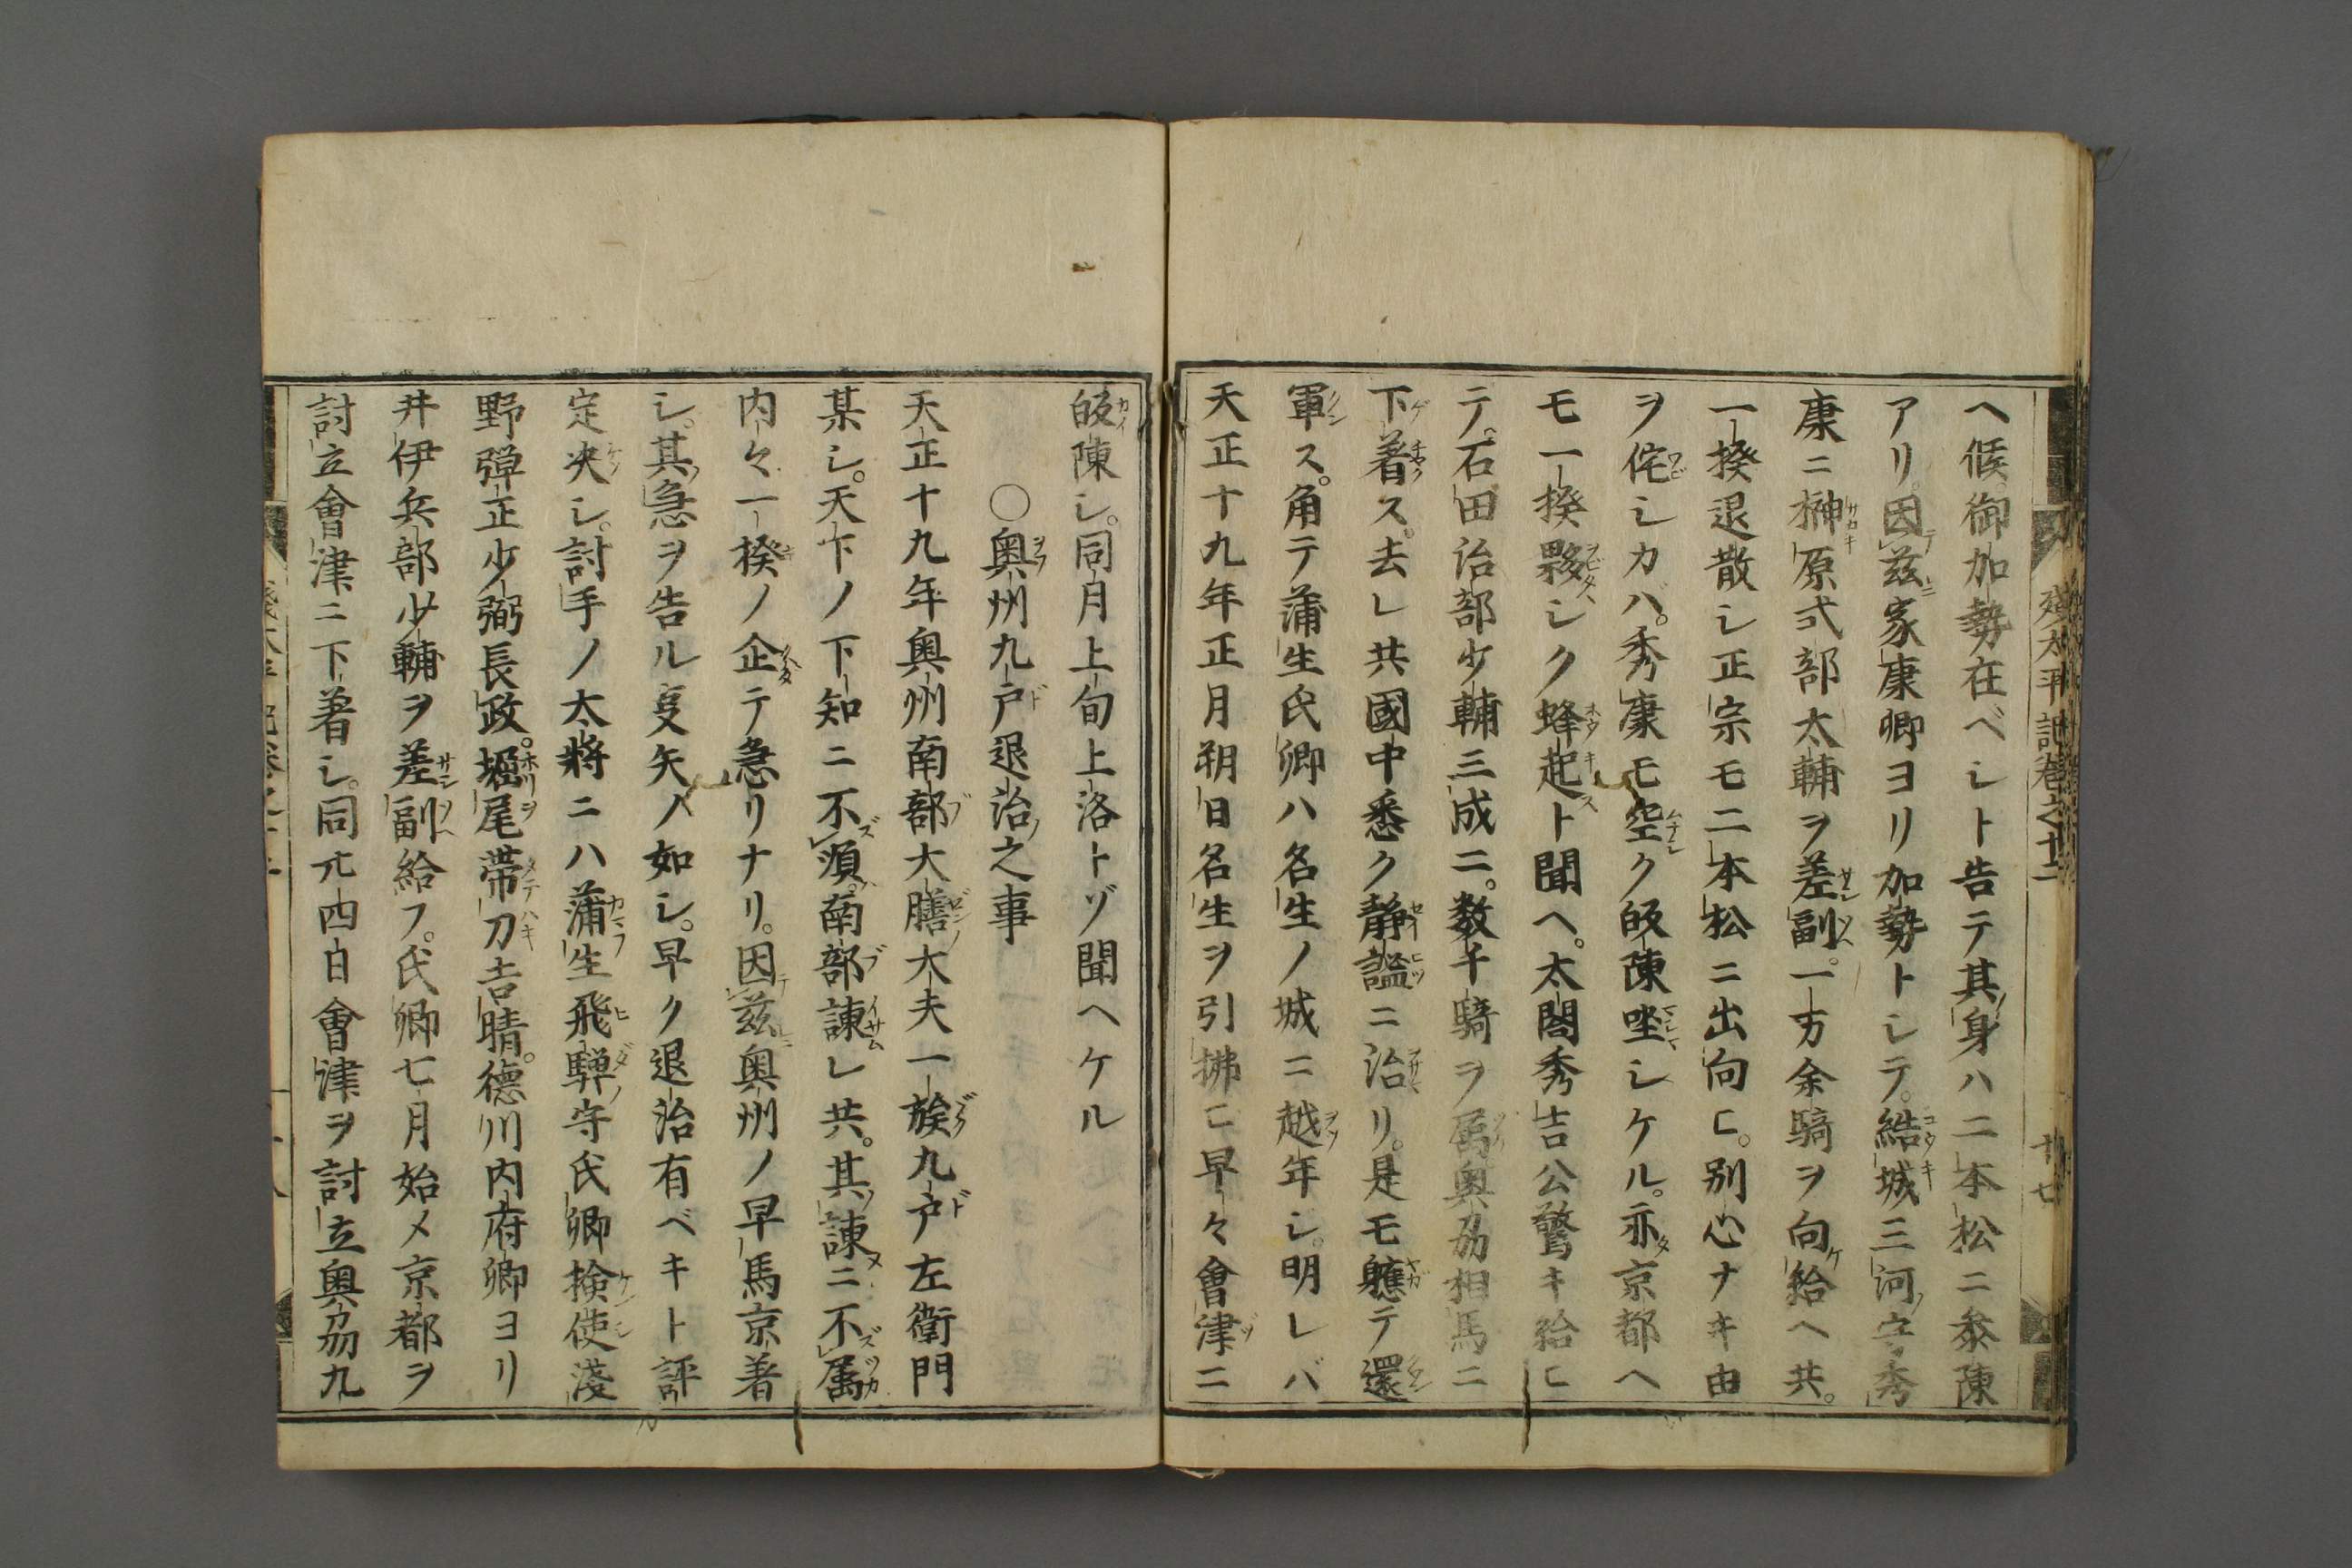 残太平記巻之十二
十七
ヘ候御加勢在ベシト告テ其身ハ二本松ニ参陳
アリ因茲家康卿ヨリ加勢トシテ。結城三河守秀
康ニ榊原式部太輔ヲ差副。一万余騎ヲ向給ヘ共。
一揆退散シ正宗モ二本松ニ出向ヒ。别心ナキ由
ヲ侘シカバ。秀康モ空ク皈陳㘴シケル。亦京都ヘ
モ一揆夥シク蜂起ト聞ヘ。太閤秀吉公驚キ給ヒ
テ。石田治部少輔三成ニ。数千騎ヲ属奥刕相馬ニ
下着ス。去レ共國中悉ク静謐ニ治リ。是モ軈テ還
軍ス。角テ蒲生氏卿ハ名生ノ城ニ越年シ。明レバ
天正十九年正月朔日名生ヲ引拂ヒ早々會津ニ
皈陳シ。同月上旬上洛トゾ聞ヘケル
〇奥州九戸退治之事
天正十九年奥州南部大膳大夫一族九戸左衛門
某シ。天下ノ下知ニ不須。南部諌レ共。其諌ニ不属
内々一揆ノ企テ急リナリ。因茲奥州ノ早馬京着
シ。其急ヲ告ル叓矢ノ如シ。早ク退治有ベキト評
定决シ。討手ノ太將ニハ蒲生飛騨守氏卿検使淺
野弾正少弼長政。堀尾帯刀吉晴。德川内府卿ヨリ
井伊兵部少輔ヲ差副給フ。氏卿七月始メ京都ヲ
討立會津ニ下着シ。同廿四日會津ヲ討立奥刕九